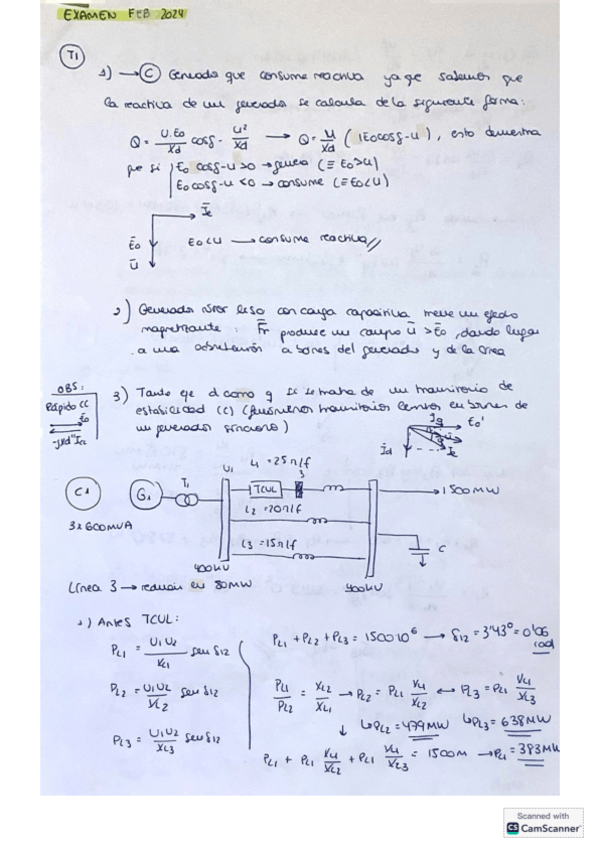 EXAMEN FEB 2024
T1
1) → C Generador que consume reactiva ya que sabemos que
la reactiva de un generador se calcula de la siguiente forma:
Q = U.E0/Xd cosδ - U²/Xd → Q = U/Xd (|E0cosδ-U), esto demuestra
que si E0 cosδ-U>0 → genera (≡ E0>U)
E0 cosδ-U<0 → consume (≡ E0<U)
E0<U → consume reactiva //
2) Generador síncr con carga capacitiva tiene un efecto
magnetizante: Fr produce un campo U > E0, dando lugar
a una a bornes del generador y de la línea
OBS:
Rápido CC
E0
3) Tanto eje d como q si se trata de un transitorio de
estabilidad (C) (fenómenos transitorios lentos en bornes de
un generador síncrono)
Iq
E0'
Id
C1
G1
T1
U1
L1 = 25Ω/f
TCUL
3
1500MW
L2 = 20Ω/f
L3 = 15Ω/f
C
3x600MVA
400kV
400kV
Línea 3 → reducir en 80MW
1) Antes TCUL:
PL1 = U1U2/XL1 senδ12
PL1 + PL2 + PL3 = 1500·10⁶ → δ12 = 3'43° = 0'06 rad
PL2 = U1U2/XL2 senδ12
PL1/PL2 = XL2/XL1 → PL2 = PL1 XL1/XL2 ↔ PL3 = PL1 XL1/XL3
↳ PL2 = 479MW ↳ PL3 = 638MW
PL3 = U1U2/XL3 senδ12
PL1 + PL1 XL1/XL2 + PL1 XL1/XL3 = 1500M → PL1 = 383MW
Scanned with
CS CamScanner